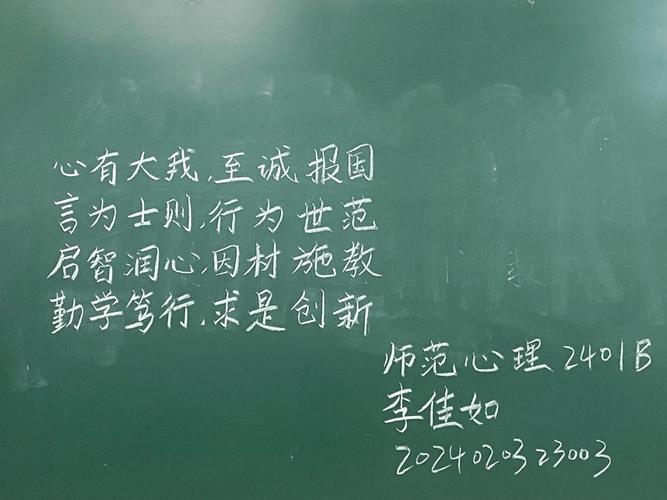 心有大我,至诚报国
言为士则,行为世范
启智润心,因材施教
勤学笃行,求是创新
师范心理2401B
李佳如
2024020323003